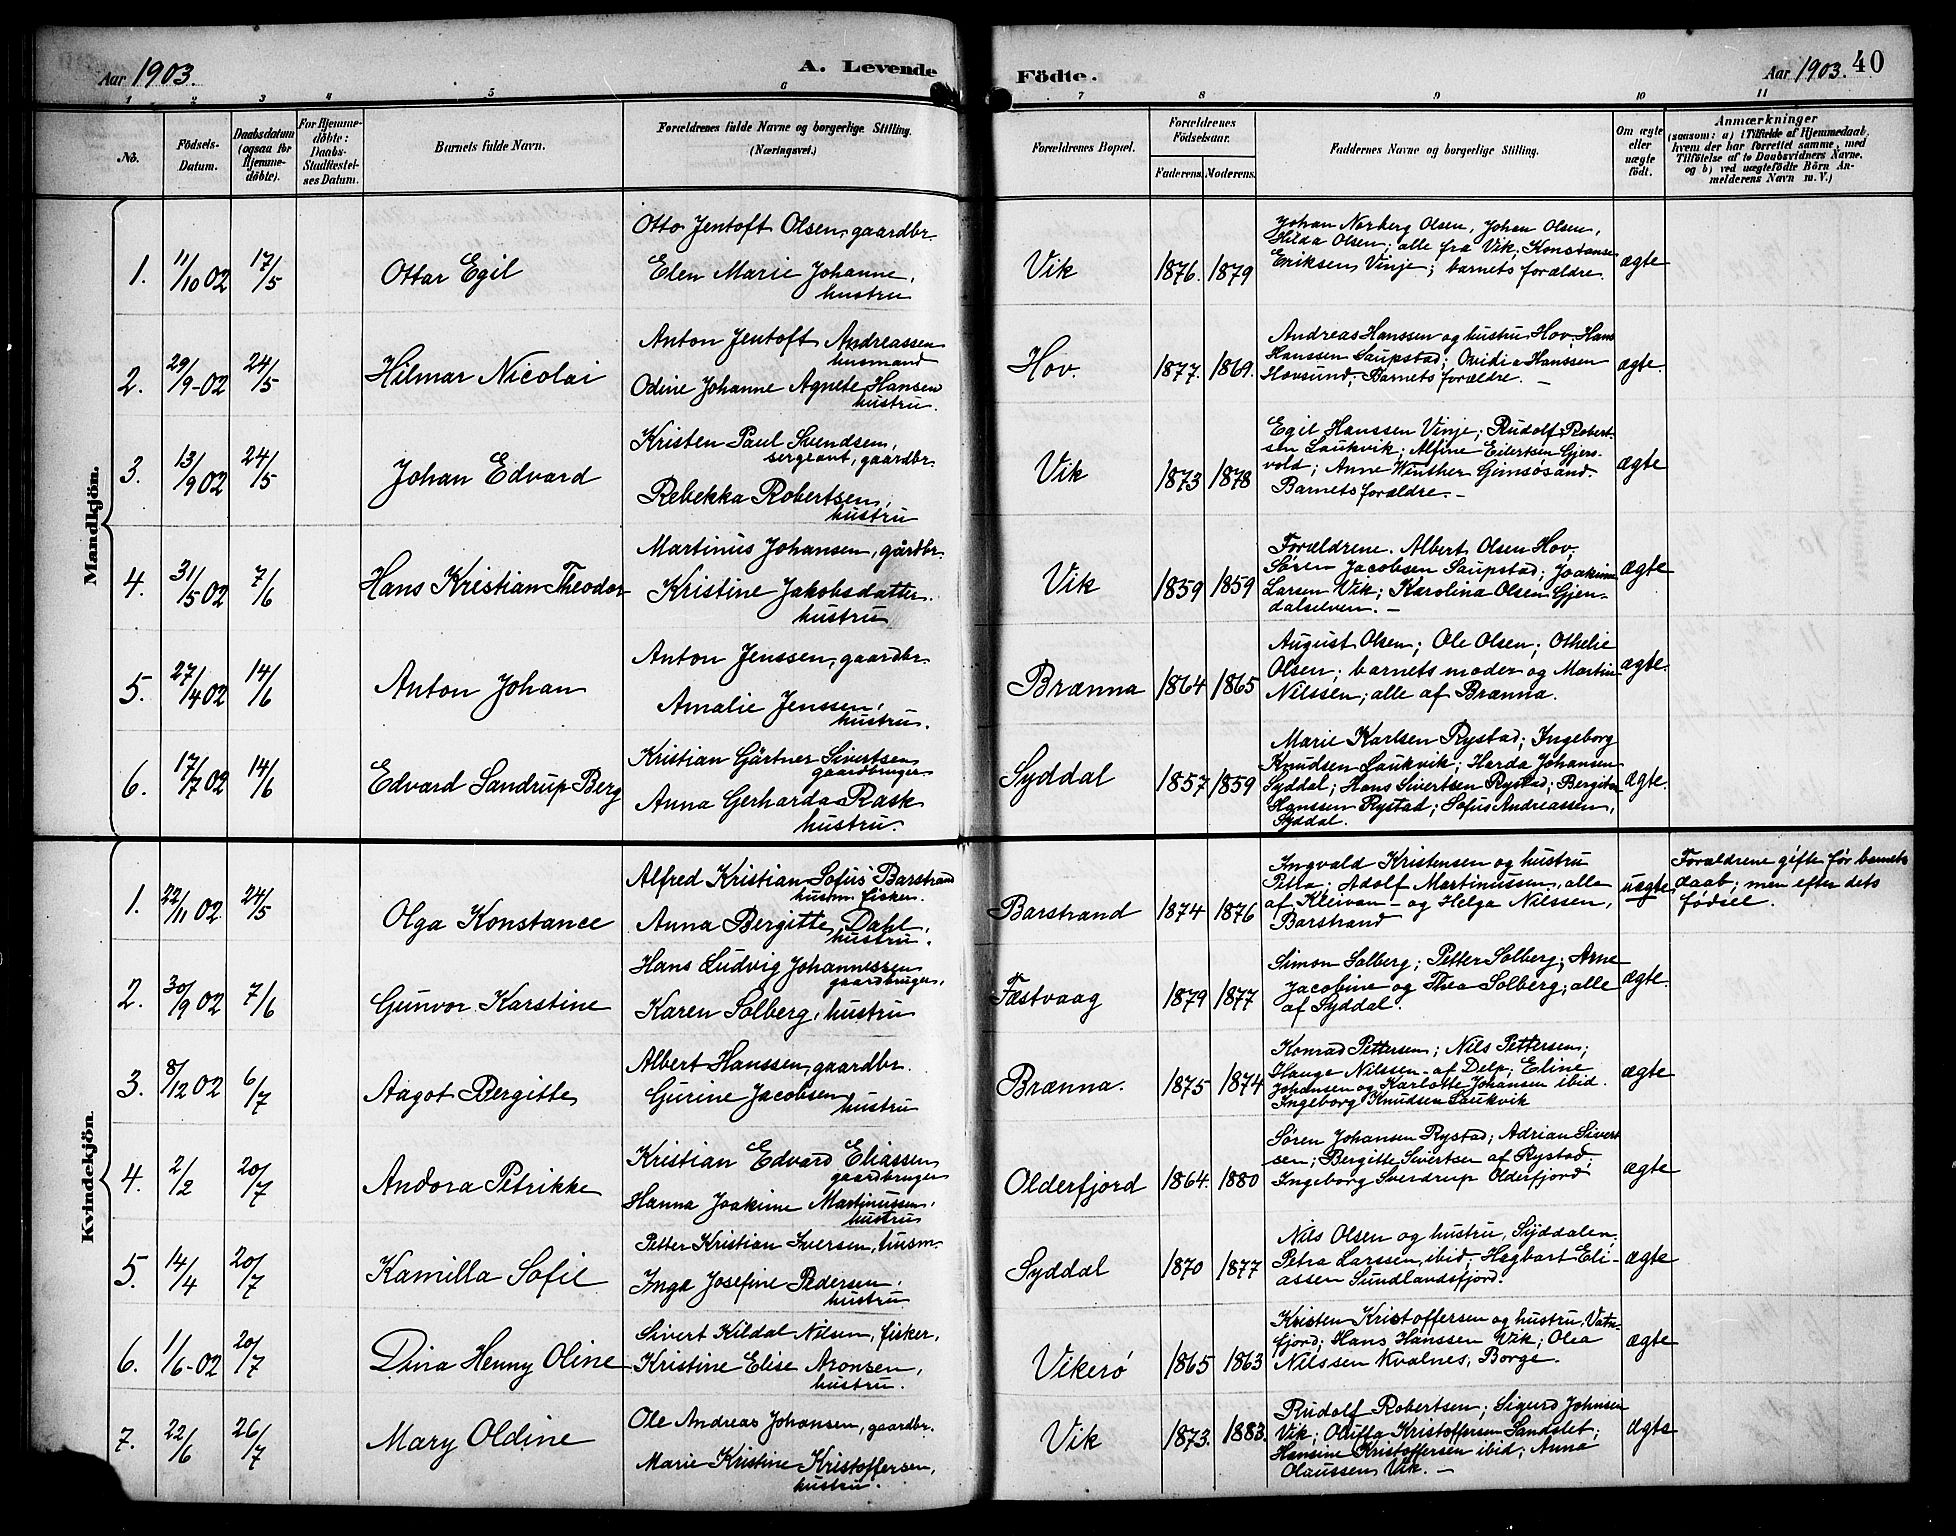 Aar 1903.
A. Levende Födte.
Aar 1903. 40
1 2 3 4 5 6 7 8 9 10 11
No.
Födsels-Datum.
Daabsdatum (ogsaa for Hjemme-döbte).
For Hjemme-döbte: Daabs-Stadfæstel-ses Datum.
Barnets fulde Navn.
Forældrenes fulde Navne og borgerlige Stilling.
(Næringsvei.)
Forældrenes Bopæl.
Forældrenes Födselsaar.
Faderens. Moderens.
Faddernes Navne og borgerlige Stilling.
Om ægte eller uægte födt.
Anmærkninger
(saasom: a) i Tilfælde af Hjemmedaab,
hvem der har forrettet samme, med
Tilföielse af to Daabsvidners Navne,
og b) ved uægtefödte Börn An-
melderens Navn m. V.)
Mandkjön.
1. 11/10 02 17/5 Ottar Egil
Otto Jentoft Olsen, gaardbr.
Elen Marie Johanne,
hustru
Vik 1876. 1879
Johan Norberg Olsen, Johan Olsen,
Hilda Olsen; alle fra Vik, Konstanse
Eriksen Vinje; barnets forældre.
ægte
2. 29/9-02 24/5 Hilmar Nicolai
Anton Jentoft Andreassen
husmand
Odine Johanne Agnete Hansen
hustru.
Hov. 1877. 1869.
Andreas Hanssen og hustru Hov, Hans
Hanssen Saupstad; Ovidie Hanssen
Hovsund; Barnets forældre. —
ægte.
3. 13/9 02 24/5 Johan Edvard
Kristen Paul Svendsen,
sergeant, gaardbr.
Rebekka Robertsen,
hustru
Vik 1873 1878
Egil Hanssen Vinje; Rudolf Robert-
sen Laukvik; Alfine Eilertsen Gjers-
vold; Anne Winther Gimsösand.
Barnets forældre. —
ægte
4. 31/5 02 7/6 Hans Kristian Theodor
Martinus Johansen, gårdbr.
Kristine Jakobsdatter.
hustru
Vik 1859 1859
Forældrene. Albert Olsen Hov,
Søren Jacobsen Saupstad; Joakim
Larsen Vik; Karolina Olsen Gjen-
dalselven. —
ægte
5. 27/4 02 14/6 Anton Johan
Anton Jenssen, gaardbr.
Amalie Jenssen,
hustru.
Brænna 1864 1865
August Olsen; Ole Olsen; Othelie
Olsen; barnets moder og Martin
Nilssen; alle af Brænna.
ægte.
6. 17/7 02 14/6 Edvard Sandrup Berg
Kristian Gärtner Sivertsen
gaardbruger
Anna Gerharda Rask
hustru.
Syddal 1857 1859
Marie Karlsen Rystad; Ingeborg
Knudsen Laukvik; Harda Johansen
Syddal; Hans Sivertsen Rystad; Bergitte
Hanssen Rystad; Sofus Andreassen,
Syddal.
ægte.
Kvindekjön.
1. 22/11 02. 24/5 Olga Konstance
Alfred Kristian Sofus Barstrand
husm. fisker.
Anna Bergitte Dahl,
hustru.
Barstrand 1874 1876
Ingvald Kristensen og hustru
Petra; Adolf Martinussen, alle
af Kleivan – og Helga Nilssen,
Barstrand
uægte
Forældrene gifte før barnets
daab; men efter dets
fødsel.
2. 30/9 02 7/6 Gunvor Karstine
Hans Ludvig Johannessen
gaardbruger,
Karen Solberg, hustru
Fæstvaag 1879 1877
Simon Solberg; Petter Solberg; Arne
Jacobine og Thea Solberg; alle
af Syddal.
ægte.
3. 8/12 02 6/7 Aagot Bergitte
Albert Hanssen, gaardbr.
Gurine Jacobsen
hustru
Brænna. 1875 1874
Konrad Pettersen; Nils Pettersen;
Hauge Nilssen – af Delp; Eline
Johansen og Karlotte Johansen ibid.
Ingeborg Knudsen Laukvik
ægte
4. 2/2 20/7 Andora Petrikke
Kristian Edvard Eliassen
gaardbruger
Hanna Joakime Martinussen,
hustru
Olderfjord 1864. 1880
Søren Johansen Rystad; Adrian Sivert
sen; Bergitte Sivertsen af Rystad,
Ingeborg Sverdrup Olderfjord
ægte
5. 14/4 20/7 Kamilla Sofie
Petter Kristian Iversen, husm.
Inga Josefine Pedersen,
hustru
Syddal 1870 1877
Nils Olsen og hustru, Syddalen,
Petra Larssen, ibid, Hegbart Eli-
assen Sundlandsfjord.
ægte
6. 1/6-02 20/7 Dina Henny Oline
Sivert Kildal Nilsen, fisker,
Kristine Elise Aronsen,
hustru.
Vikerö 1865 1863
Kristen Kristoffersen og hustru, Vatn-
fjord; Hans Hanssen Vik; Olea
Nilssen Kvalnes, Borge.
ægte
7. 22/6 26/7 Mary Oldine
Ole Andreas Johansen, gaardbr.
Marie Kristine Kristoffersen,
hustru.
Vik 1873. 1883.
Rudolf Robertsen; Sigurd Johnsen
Vik; Kristoffersen Sandslet;
Hansine Kristoffersen ibid; Anna
Olaussen Vik. —
ægte